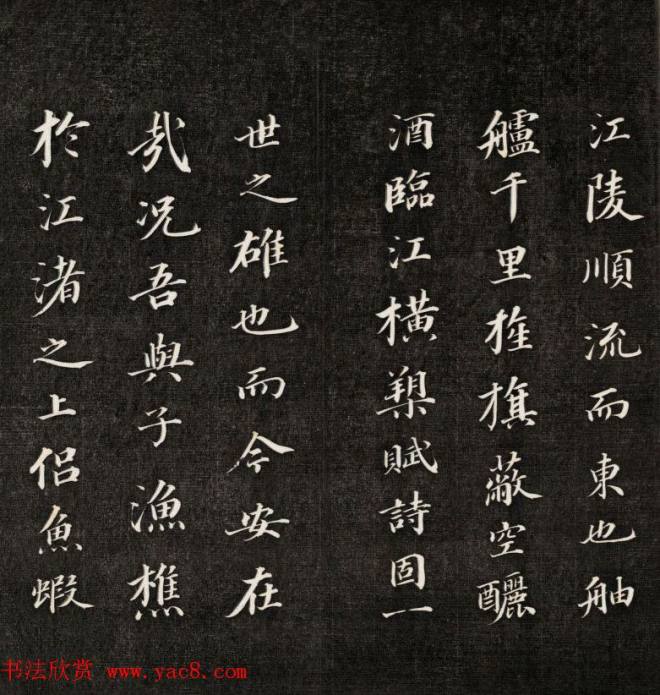 江陵順流而東也舳
艫千里旌旗蔽空釃
酒臨江橫槊賦詩固一
世之雄也而今安在
哉況吾與子漁樵
於江渚之上侶魚蝦
书法欣赏 www.yac8.com